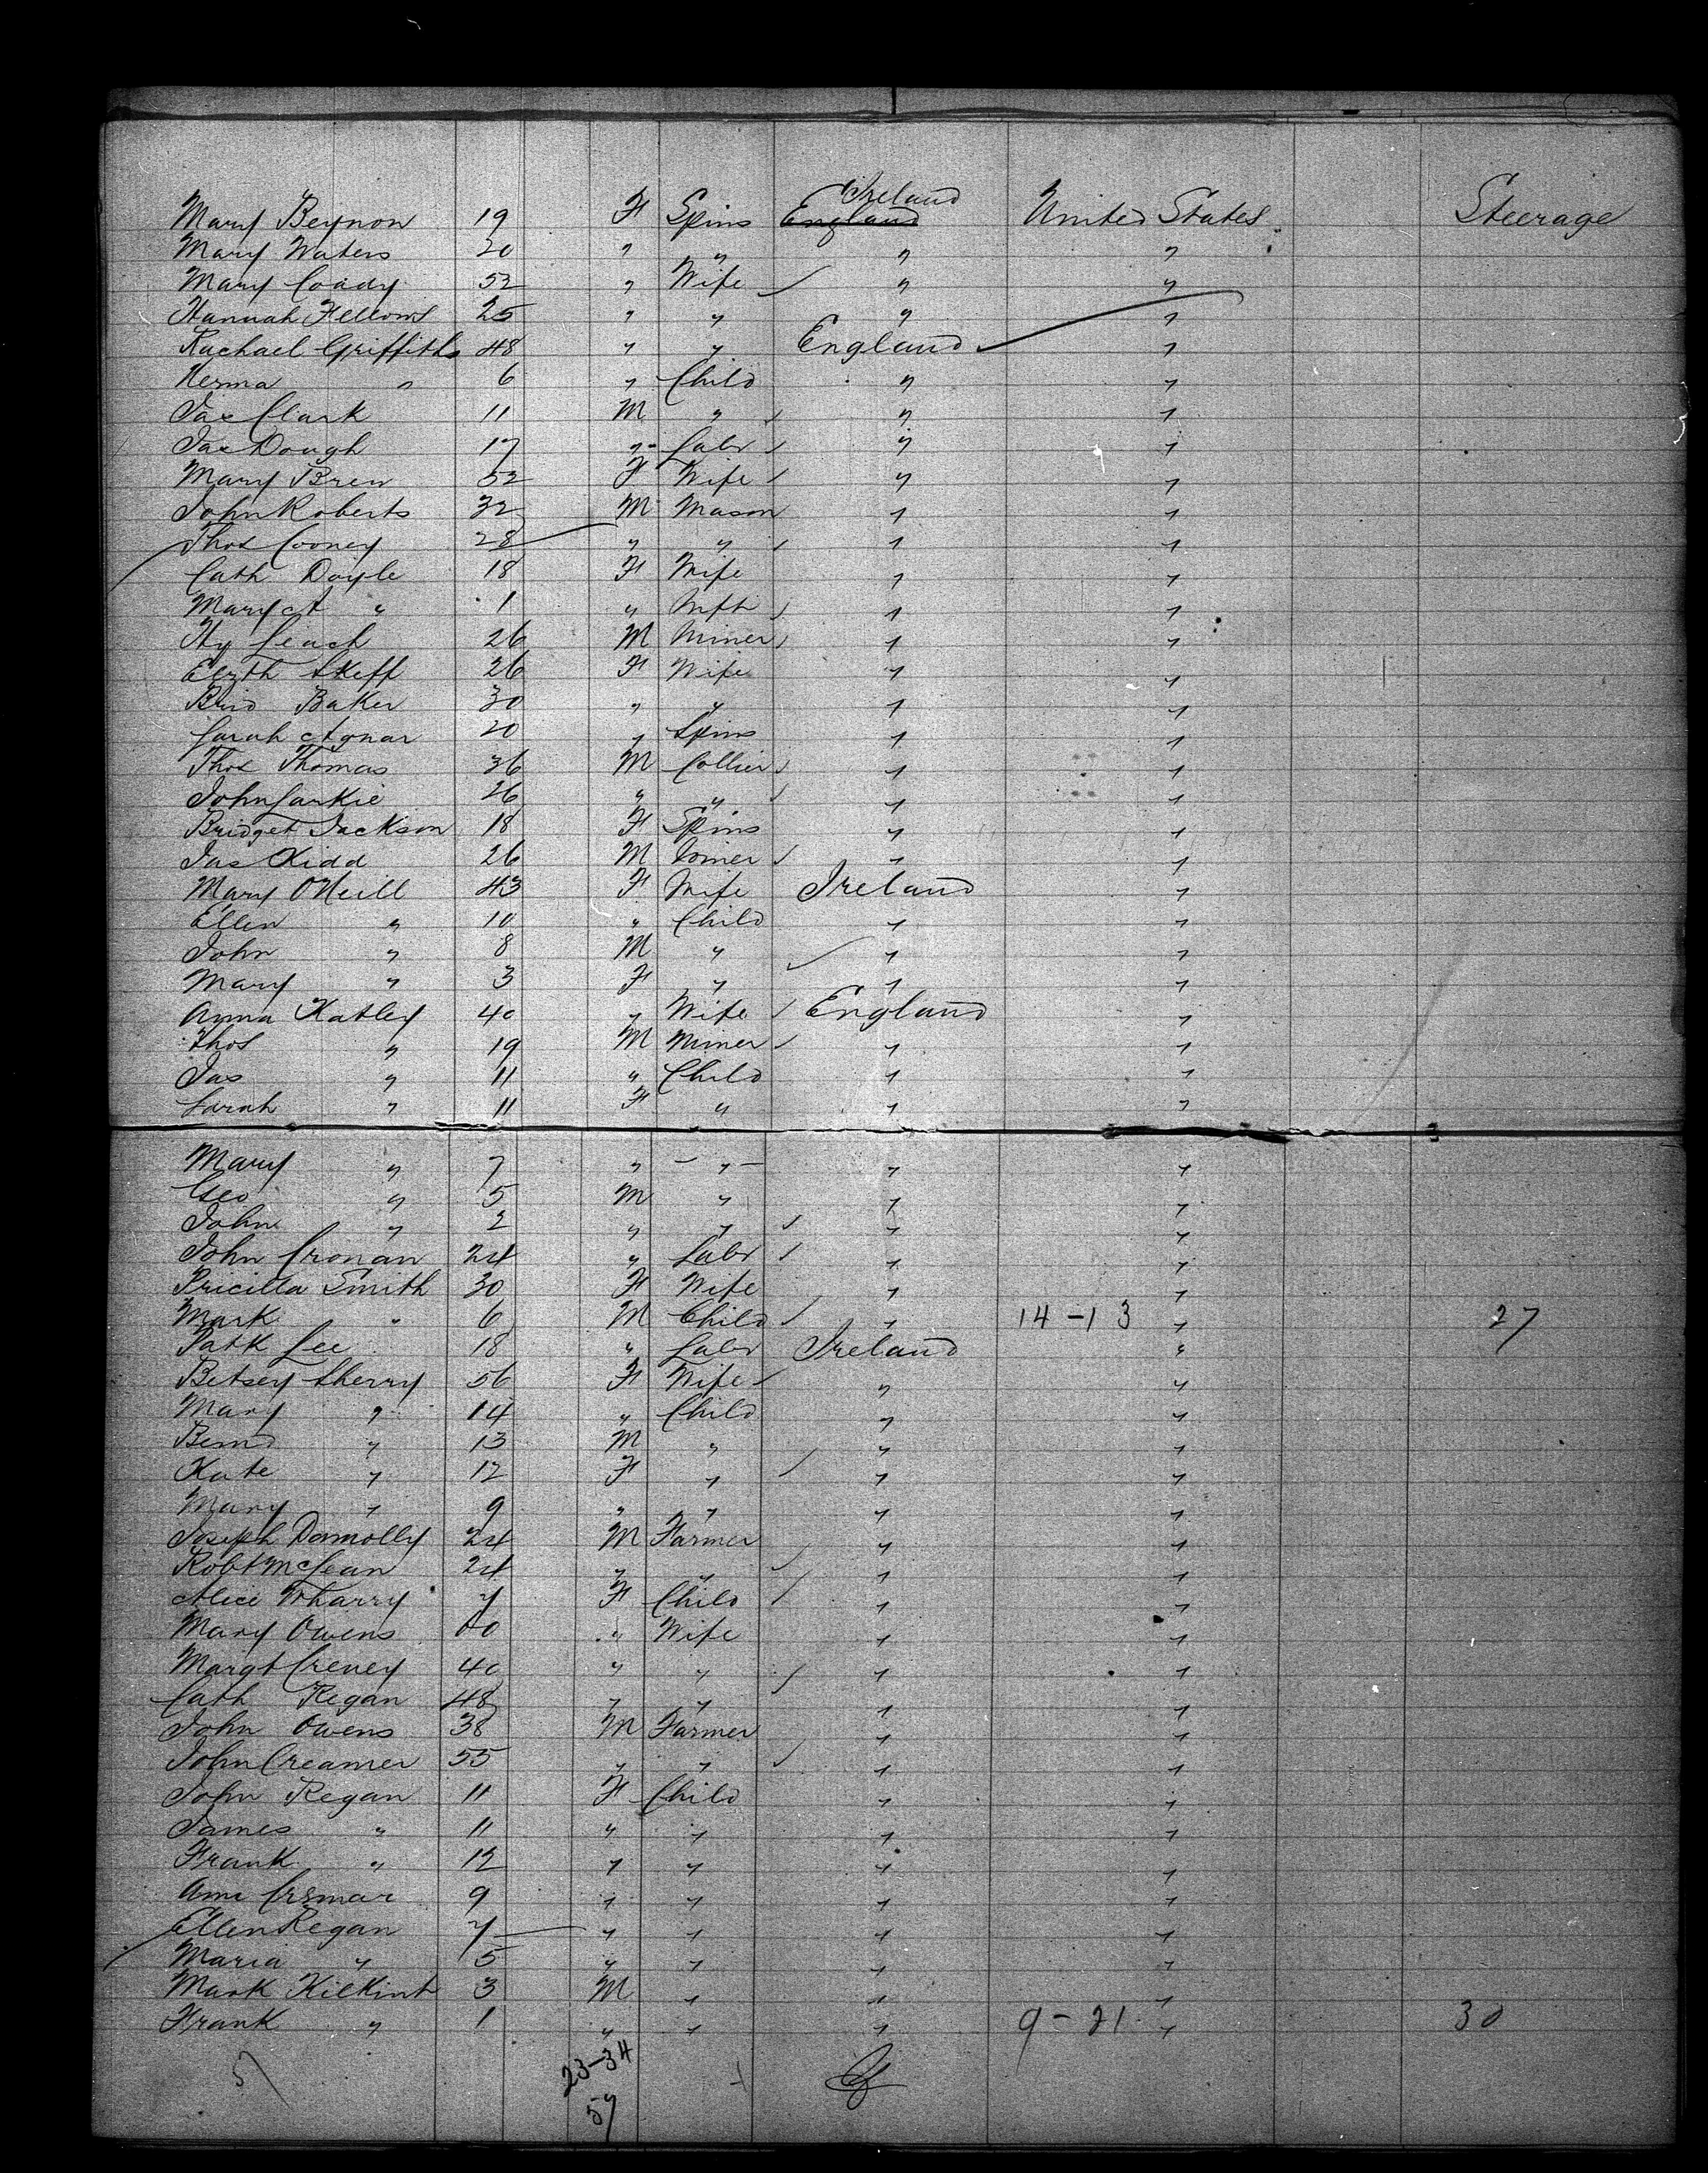 Ireland
Mary Beynon 19 F Spins England United States Steerage
Mary Waters 20 " " " "
Mary Coady 52 " Wife " "
Hannah Fellows 25 " " " "
Rachael Griffiths 48 " " England "
" 6 " Child " "
Jas Clark 11 M " " "
Jas Dough 17 " Labr " "
Mary Brew 52 F Wife " "
John Roberts 32 M Mason " "
Thos Cooney 28 " " " "
Cath Doyle 18 F Wife " "
Mary A " 1 " Inft " "
Hy Leach 26 M Miner " "
Elizth Skeff 26 F Wife " "
Brid Baker 30 " " " "
Sarah Agnar 20 " Spins " "
Thos Thomas 36 M Collier " "
John Larkie 26 " " " "
Bridget Jackson 18 F Spins " "
Jas Kidd 26 M Joiner " "
Mary ONeill 43 F Wife Ireland "
Ellen " 10 " Child " "
John " 8 M " " "
Mary " 3 F " " "
Anna Katley 40 " Wife England "
Thos " 19 M Miner " "
Jas " 11 " Child " "
Sarah " 11 F " " "
Mary " 7 " " " "
Geo " 5 M " " "
John " 2 " " " "
John Cronan 24 " Labr " "
Pricilla Smith 30 F Wife " "
Mark " 6 M Child " 14-13 " 27
Patk Lee 18 " Labr Ireland "
Betsey Sherry 56 F Wife " "
Mary " 14 " Child " "
Bernd " 13 M " " "
Kate " 12 F " " "
Mary " 9 " " " "
Joseph Donnolly 24 M Farmer " "
Robt McLean 24 " " " "
Alice Wharry 7 F Child " "
Mary Owens " Wife " "
Margt Creney 40 " " " "
Cath Regan 48 " " " "
John Owens 38 M Farmer " "
John Creamer 55 " " " "
John Regan 11 F Child " "
James " 11 " " " "
Frank " 12 " " " "
9 " " " "
Ellen Regan 7 " " " "
Maria " 5 " " " "
Mark Kilkint 3 M " " "
Frank " 1 " " " 9-21 " 30
57 23-34
57